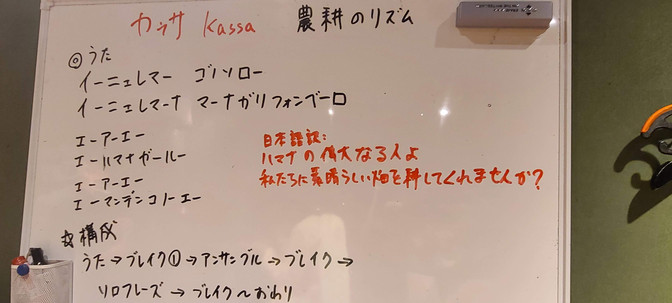 カッサ Kassa 農耕のリズム
◎うた
イーニェレマー ゴノソロー
イーニェレマーナ マーナガリフォンベーロ
エーアーエー
エーハマナガールー
エーアーエー
エーマンデンコノーエー
日本語訳:
ハマナの偉大なる人よ
私たちに素晴らしい畑を耕してくれませんか?
☆構成
うた→ブレイク①→アンサンブル→ブレイク→
ソロフレーズ→ブレイク〜おわり